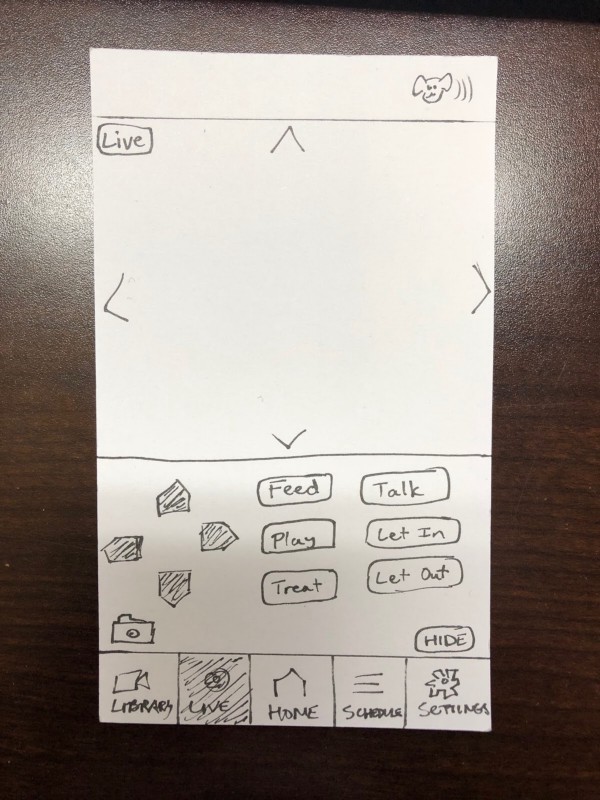 Live
Feed Talk
Play Let In
Treat Let Out
HIDE
LIBRARY LIVE HOME SCHEDULE SETTINGS